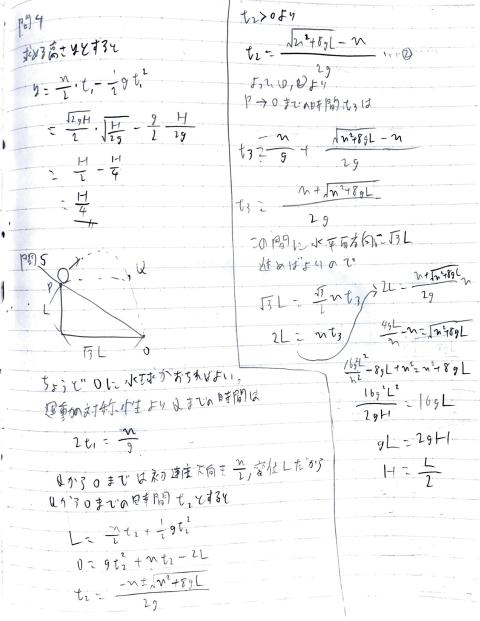 問4
求める高さはとすると
y = n/2・t₁ - 1/2 g t₁²
= √2gH/2・√H/2g - g/2 H/2g
= H/2 - H/4
= H/4
問5
P
Q
L
√3L
O
ちょうどOに水球がおちればよい。
運動の対称性よりQまでの時間は
2t₁ = n/g
QからOまでは初速度下向き n/2, 変位Lだから
QからOまでの時間t₂とすると
L = n/2 t₂ + 1/2 g t₂²
0 = g t₂² + n t₂ - 2L
t₂ = -n ± √n²+8gL / 2g
t₂>0より
t₂ = √n²+8gL - n / 2g …②
よって①,②より
P→Oまでの時間t₃は
t₃ = n/g + √n²+8gL - n / 2g
t₃ = n + √n²+8gL / 2g
この間に水平方向に√3L
進めばよいので
√3L = √3/2 n t₃
2L = n t₃
2L = n+√n²+8gL / 2g n
4gL/n - n = √n²+8gL
16g²L²/n² - 8gL + n² = n² + 8gL
16g²L²/2gH = 16gL
gL = 2gH
H = L/2